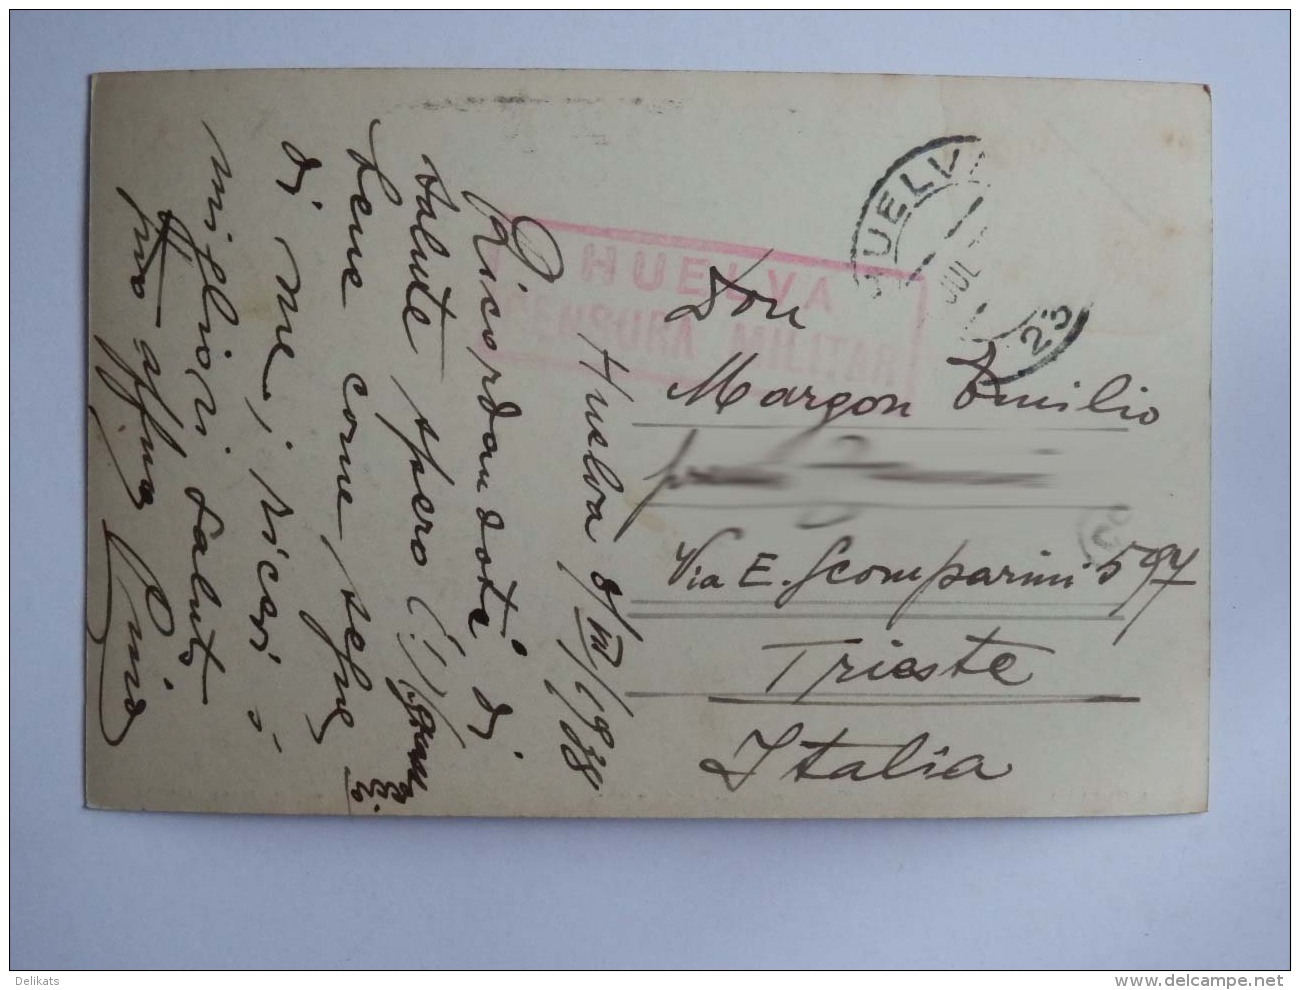 Huelva 8/VII/1938
Ricordandoti di
salute spero
bene come
di me, i
migliori saluti
tuo aff.mo
HUELVA
CENSURA MILITAR
HUELVA
JUL
23
Don
Margon Emilio
Via E. Scomparini 597
Trieste
Italia
Delikats
www.delcampe.net